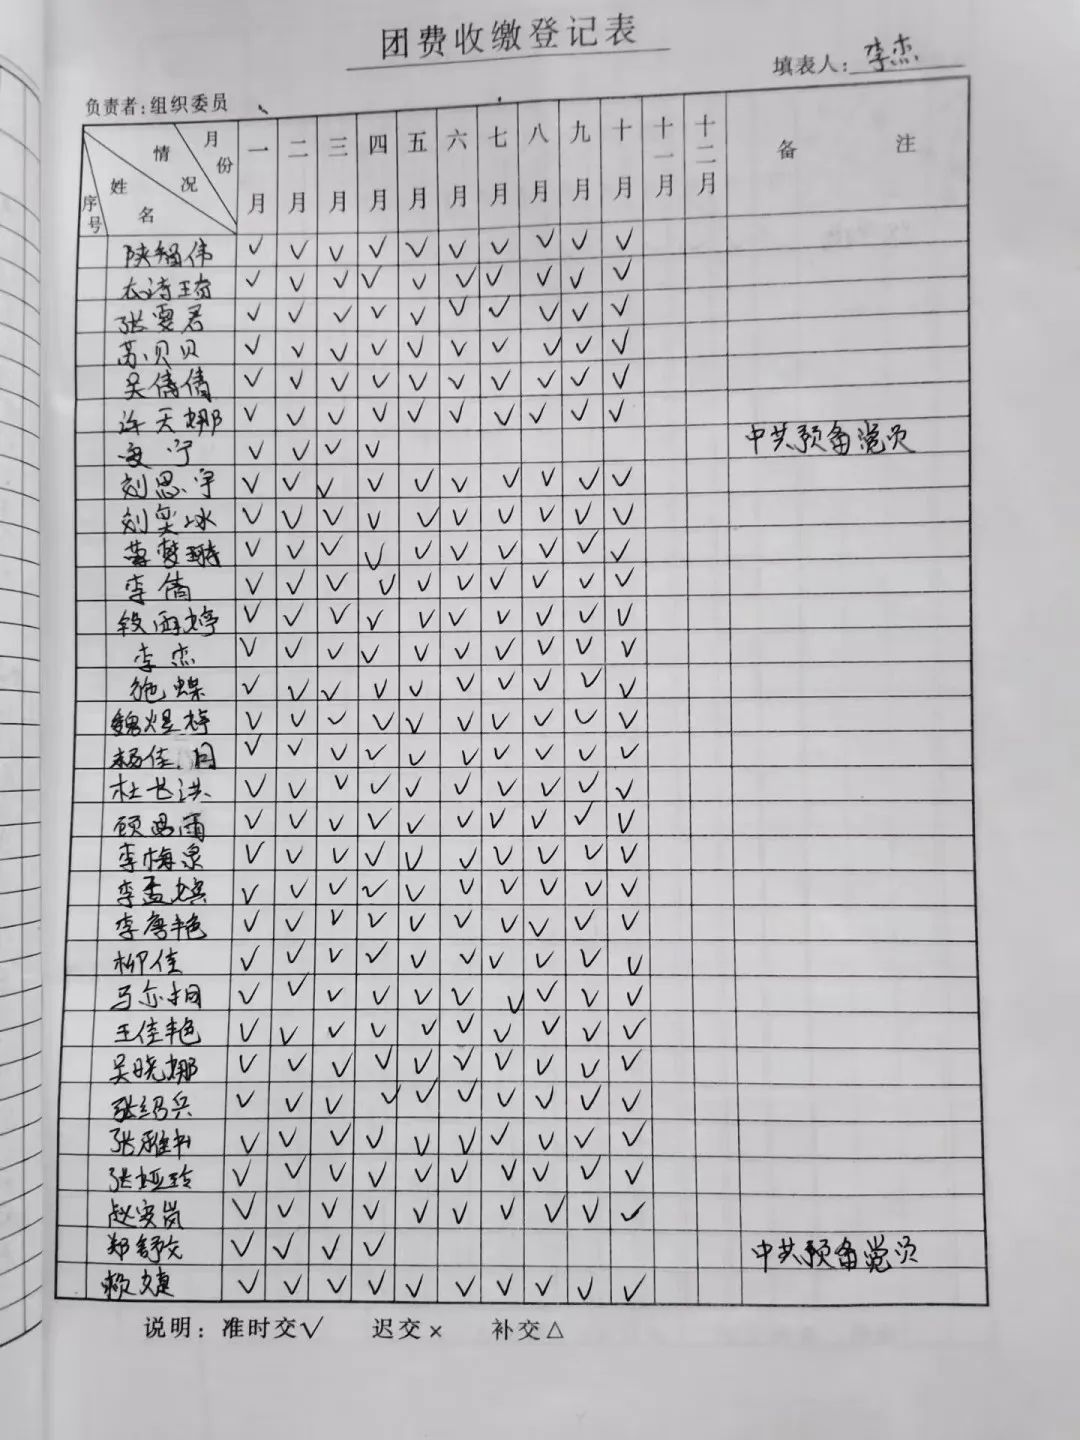 团费收缴登记表
填表人:李杰
负责者:组织委员
序号 姓名 情况 月份 一月 二月 三月 四月 五月 六月 七月 八月 九月 十月 十一月 十二月 备注
伟 ✓ ✓ ✓ ✓ ✓ ✓ ✓ ✓ ✓ ✓
衣诗琦 ✓ ✓ ✓ ✓ ✓ ✓ ✓ ✓ ✓ ✓
张雯君 ✓ ✓ ✓ ✓ ✓ ✓ ✓ ✓ ✓ ✓
苏贝贝 ✓ ✓ ✓ ✓ ✓ ✓ ✓ ✓ ✓ ✓
吴倩倩 ✓ ✓ ✓ ✓ ✓ ✓ ✓ ✓ ✓ ✓
许天娜 ✓ ✓ ✓ ✓ ✓ ✓ ✓ ✓ ✓ ✓
宁 ✓ ✓ ✓ ✓ 中共预备党员
刘思宇 ✓ ✓ ✓ ✓ ✓ ✓ ✓ ✓ ✓ ✓
刘奕冰 ✓ ✓ ✓ ✓ ✓ ✓ ✓ ✓ ✓ ✓
梦琳 ✓ ✓ ✓ ✓ ✓ ✓ ✓ ✓ ✓ ✓
李倩 ✓ ✓ ✓ ✓ ✓ ✓ ✓ ✓ ✓ ✓
段雨婷 ✓ ✓ ✓ ✓ ✓ ✓ ✓ ✓ ✓ ✓
李杰 ✓ ✓ ✓ ✓ ✓ ✓ ✓ ✓ ✓ ✓
施蝶 ✓ ✓ ✓ ✓ ✓ ✓ ✓ ✓ ✓ ✓
魏煜梓 ✓ ✓ ✓ ✓ ✓ ✓ ✓ ✓ ✓ ✓
杨佳月 ✓ ✓ ✓ ✓ ✓ ✓ ✓ ✓ ✓ ✓
杜书洪 ✓ ✓ ✓ ✓ ✓ ✓ ✓ ✓ ✓ ✓
顾雨 ✓ ✓ ✓ ✓ ✓ ✓ ✓ ✓ ✓ ✓
李梅泉 ✓ ✓ ✓ ✓ ✓ ✓ ✓ ✓ ✓ ✓
李孟嫔 ✓ ✓ ✓ ✓ ✓ ✓ ✓ ✓ ✓ ✓
李唐艳 ✓ ✓ ✓ ✓ ✓ ✓ ✓ ✓ ✓ ✓
柳佳 ✓ ✓ ✓ ✓ ✓ ✓ ✓ ✓ ✓ ✓
马尔 ✓ ✓ ✓ ✓ ✓ ✓ ✓ ✓ ✓ ✓
王佳艳 ✓ ✓ ✓ ✓ ✓ ✓ ✓ ✓ ✓ ✓
吴晓娜 ✓ ✓ ✓ ✓ ✓ ✓ ✓ ✓ ✓ ✓
张绍兵 ✓ ✓ ✓ ✓ ✓ ✓ ✓ ✓ ✓ ✓
张雅书 ✓ ✓ ✓ ✓ ✓ ✓ ✓ ✓ ✓ ✓
张娅玲 ✓ ✓ ✓ ✓ ✓ ✓ ✓ ✓ ✓ ✓
赵安岚 ✓ ✓ ✓ ✓ ✓ ✓ ✓ ✓ ✓ ✓
郑舒文 ✓ ✓ ✓ ✓ 中共预备党员
赖文 ✓ ✓ ✓ ✓ ✓ ✓ ✓ ✓ ✓ ✓
说明:准时交✓ 迟交× 补交△